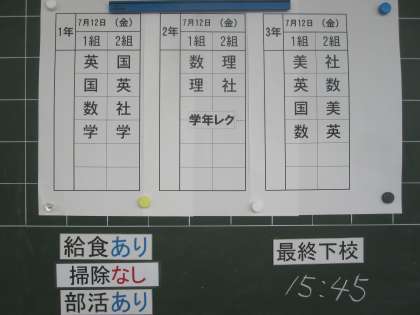 1年 7月12日 (金)
1組 2組
英 国
国 英
数 社
学 学
2年 7月12日 (金)
1組 2組
数 理
理 社
学年レク
3年 7月12日 (金)
1組 2組
美 社
英 数
国 美
数 英
給食あり
掃除なし
部活あり
最終下校
15:45